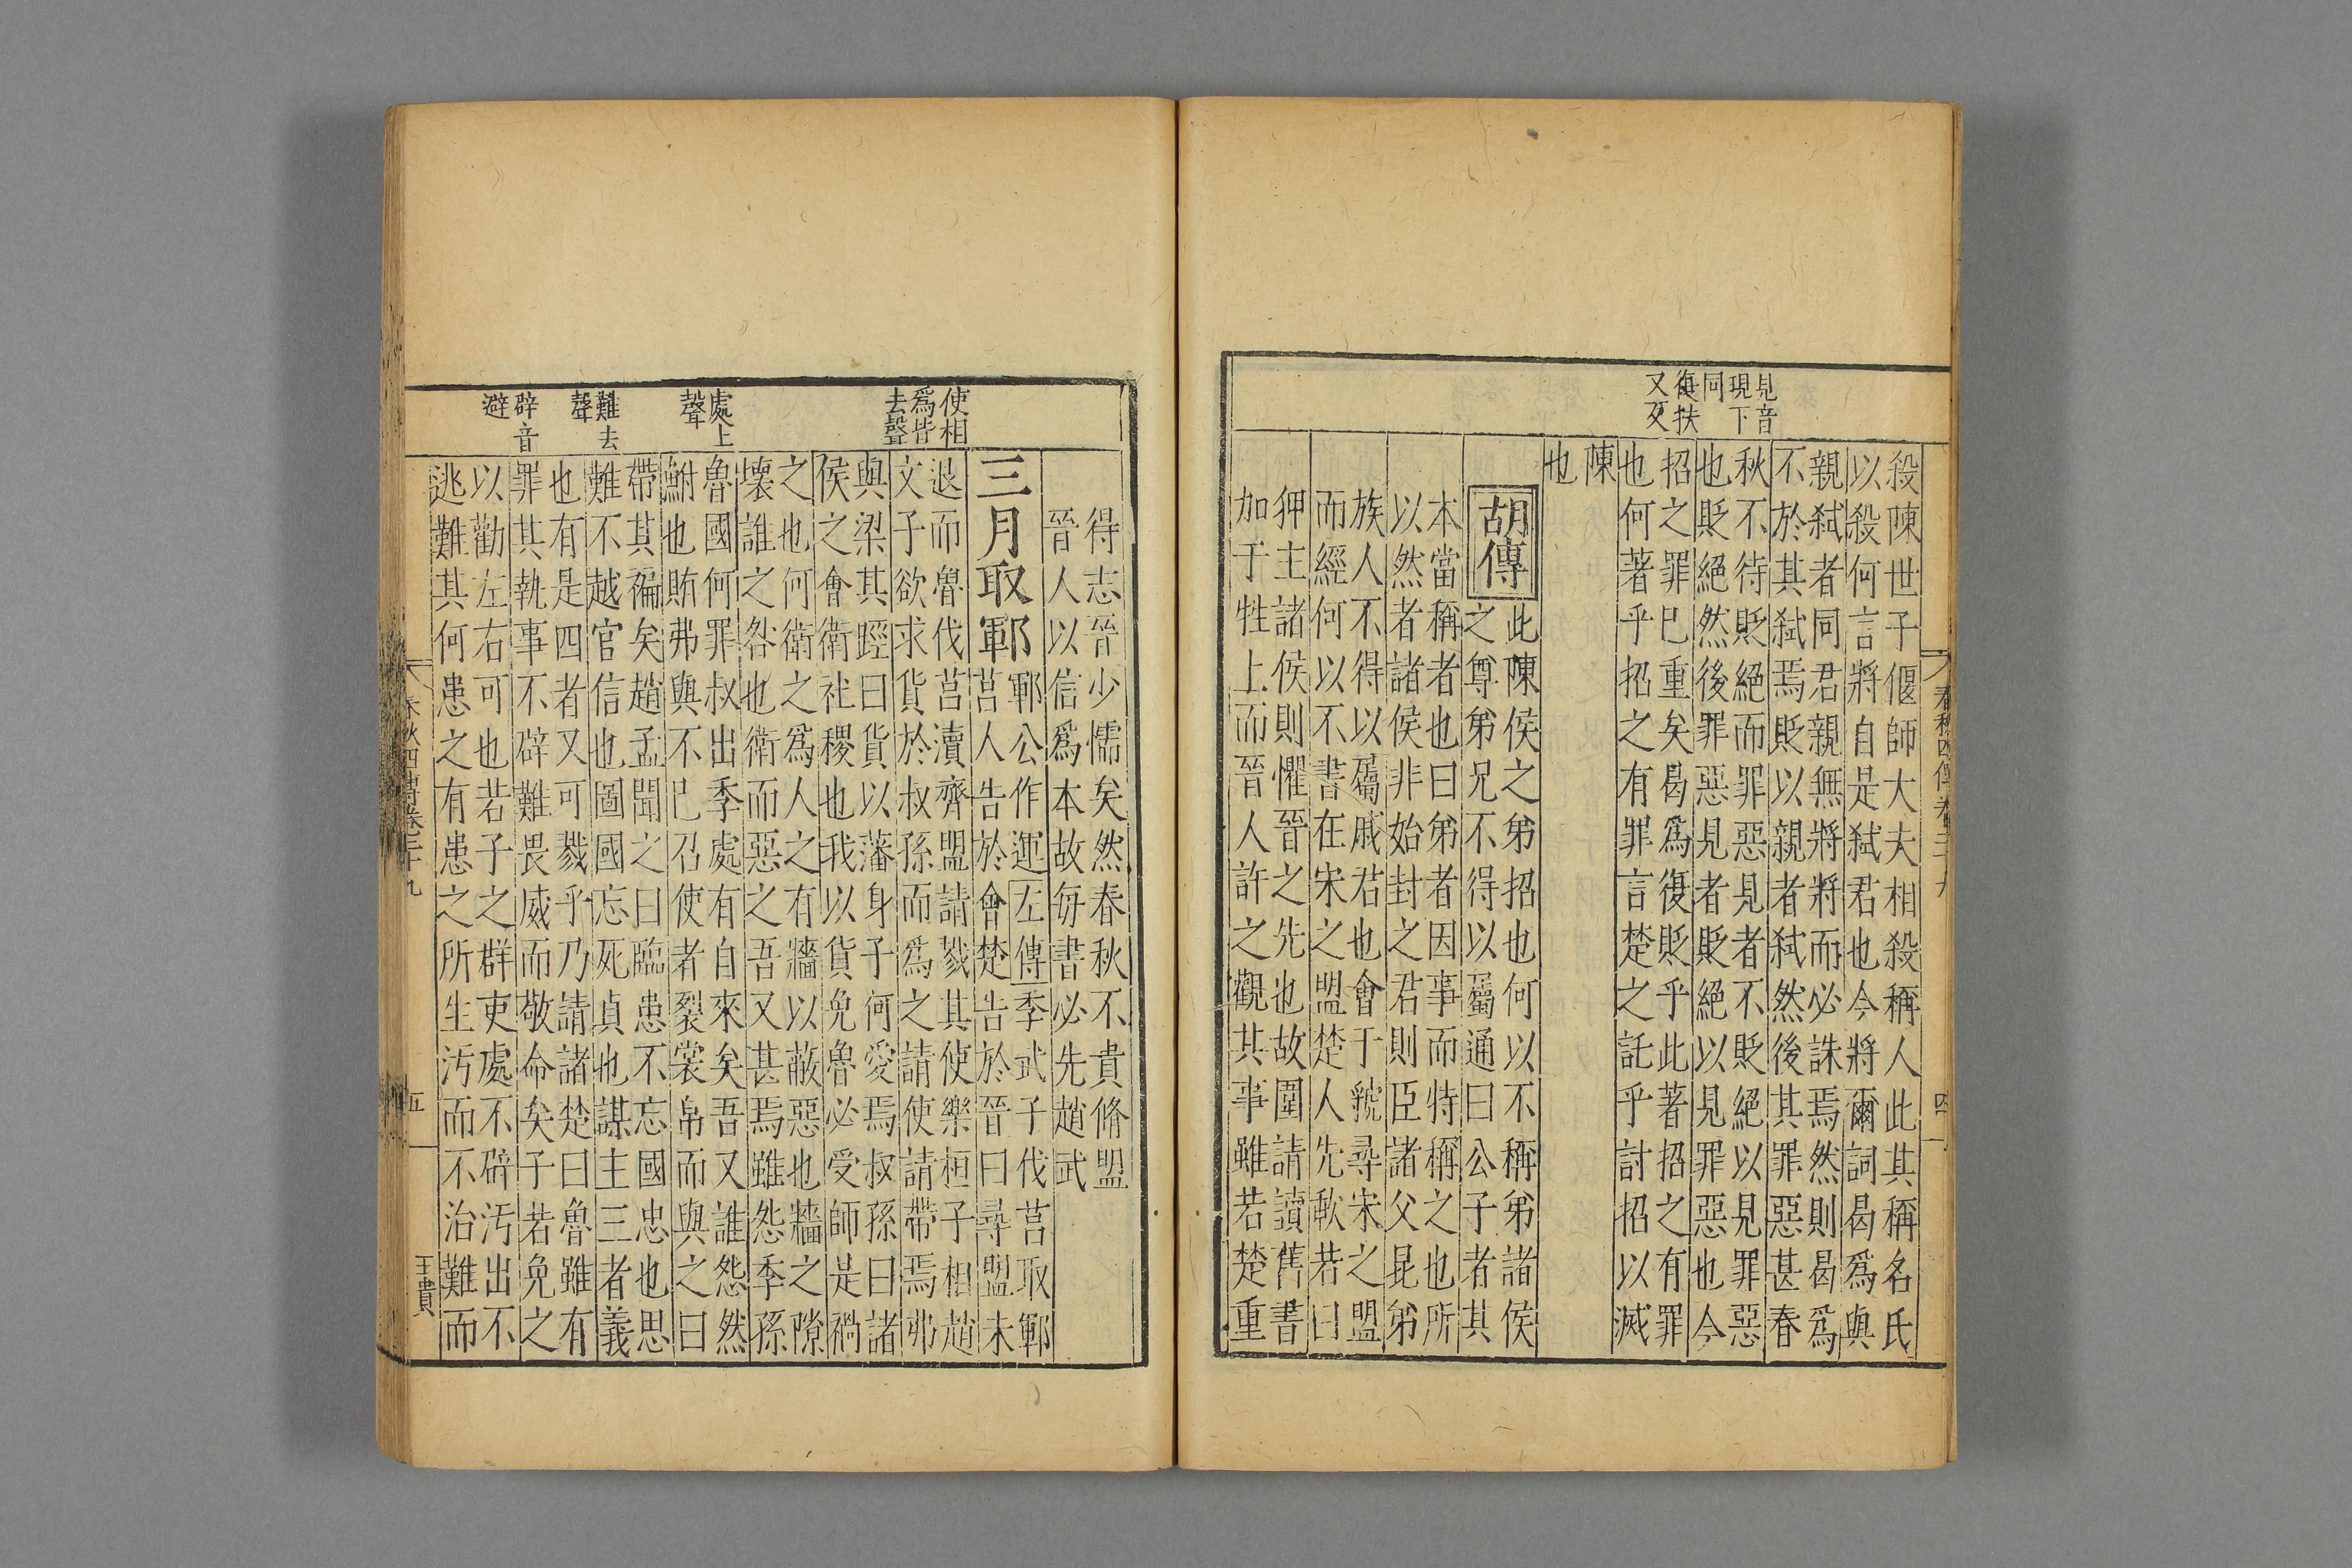 見音
現下
同
復扶
又又
殺陳世子偃師大夫相殺稱人此其稱名氏
以殺何言將自是弑君也今將爾詞曷爲與
親弑者同君親無將將而必誅焉然則曷爲
不於其弑焉貶以親者弑然後其罪惡甚春
秋不待貶絕而罪惡見者不貶絕以見罪惡
也貶絕然後罪惡見者貶絕以見罪惡也今
招之罪已重矣曷爲復貶乎此著招之有罪
也何著乎招之有罪言楚之託乎討招以滅
陳
也
胡傳
此陳侯之弟招也何以不稱弟諸侯
之尊弟兄不得以屬通曰公子者其
本當稱者也曰弟者因事而特稱之也所
以然者諸侯非始封之君則臣諸父昆弟
族人不得以屬戚君也會于虢尋宋之盟
而經何以不書在宋之盟楚人先歃若曰
狎主諸侯則懼晉之先也故圍請讀舊書
加于牲上而晉人許之觀其事雖若楚重
春秋四傳卷二十九
四
使相
爲皆
去聲
處上
聲
難去
聲
辟音
避
得志晉少懦矣然春秋不貴脩盟
晉人以信爲本故每書必先趙武
三月取鄆
鄆公作運左傳季武子伐莒取鄆
莒人告於會楚告於晉曰尋盟未
退而魯伐莒瀆齊盟請戮其使樂桓子相趙
文子欲求貨於叔孫而爲之請使請帶焉弗
與梁其踁曰貨以藩身子何愛焉叔孫曰諸
侯之會衛社稷也我以貨免魯必受師是禍
之也何衛之爲人之有牆以蔽惡也牆之隙
壞誰之咎也衛而惡之吾又甚焉雖怨季孫
魯國何罪叔出季處有自來矣吾又誰怨然
鮒也賄弗與不已召使者裂裳帛而與之曰
帶其褊矣趙孟聞之曰臨患不忘國忠也思
難不越官信也圖國忘死貞也謀主三者義
也有是四者又可戮乎乃請諸楚曰魯雖有
罪其執事不辟難畏威而敬命矣子若免之
以勸左右可也若子之群吏處不辟汚出不
逃難其何患之有患之所生汚而不治難而
春秋四傳卷二十九
五
王貴